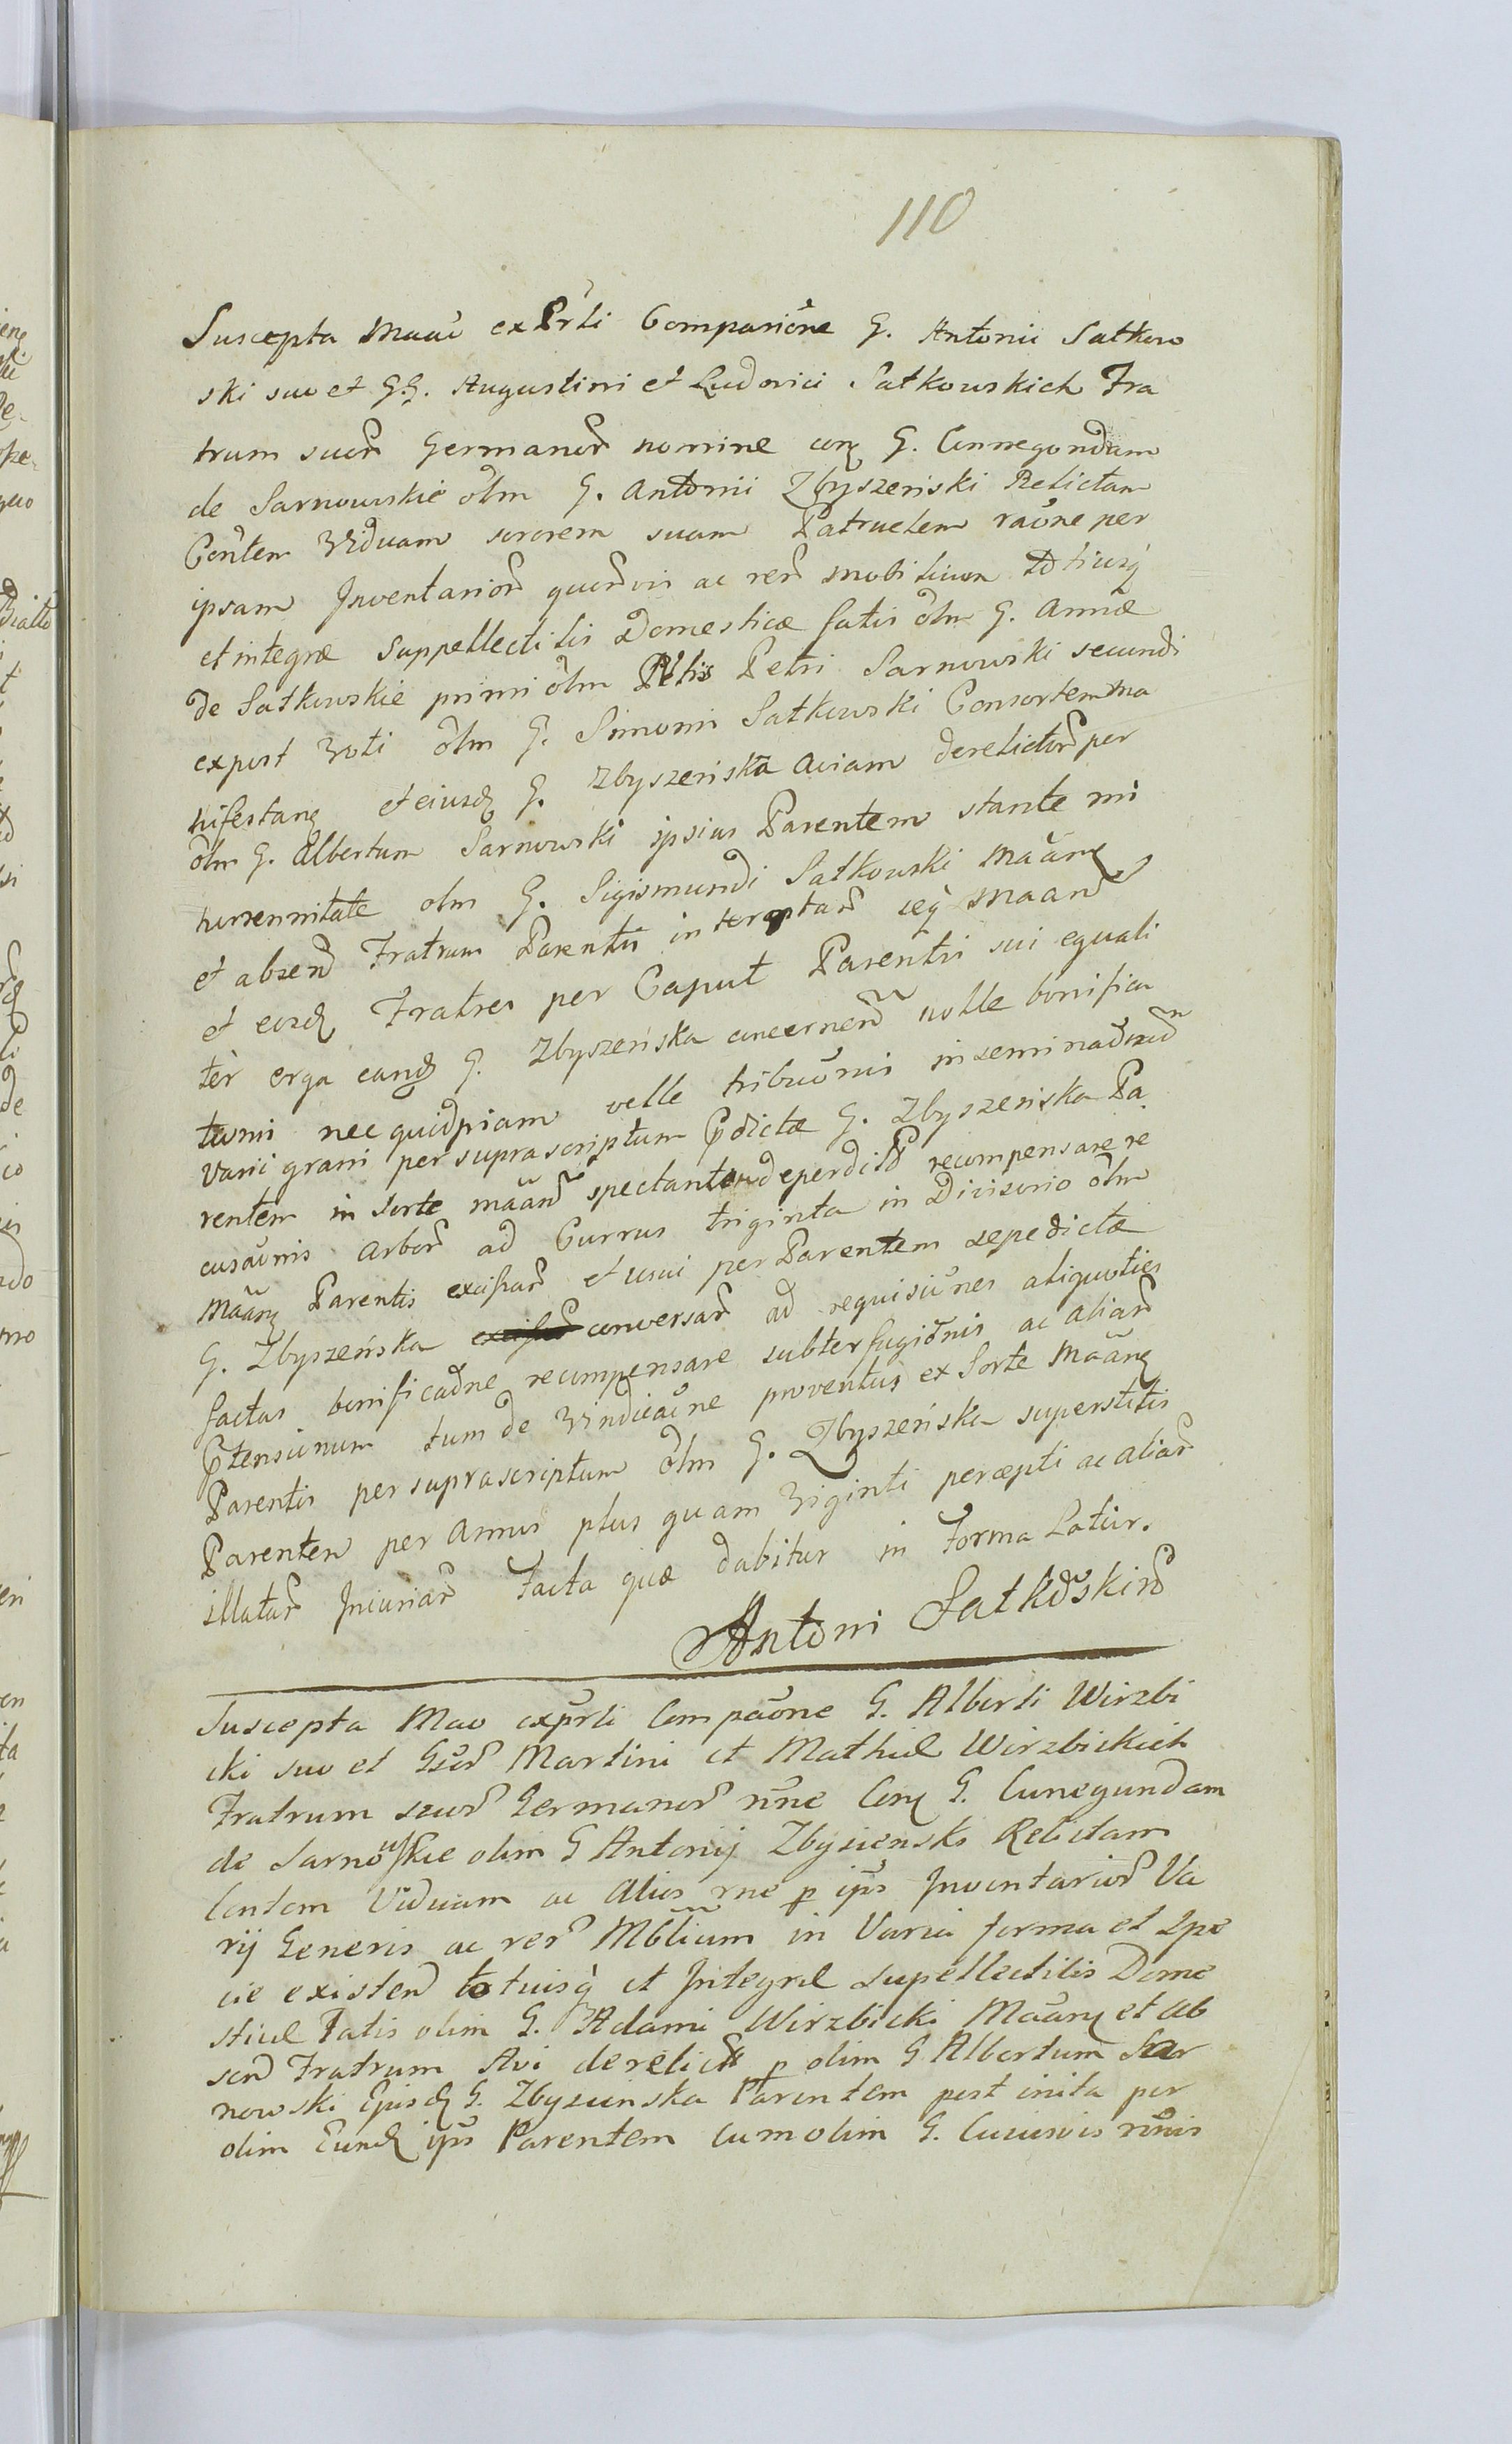 110
Suscepta Maaõ ex Prti Compariõne G. Antonii Satkow
ski suo et G.G. Augustini et Ludovici Satkowskich Fra
trum suor̃ Germanor̃ nomine con̄ G. Connegondam
de Sarnowskie õlm G. Antonii Zbyszeński Relictam
Conten Viduam sororem suam Patruelem raõne per
ipsam Inventarior̃ quorvis ac rer̃ mobilium totiusq̃
et integræ Suppellectilis Domesticæ fatis õlm G. Annæ
de Satkowskie primi õlm Petri Sarnowski secundi
expost Voti õlm G. Simonis Satkowski Consortem Ma
nifestanẽ et eiusd G. Zbyszeńska aviam derelictor̃ per
õlm G. Albertum Sarnowski ipsius Parentem stante mi
norennitate olm G. Sigismundi Satkowski Maãnẽ
et absen̄ Fratrum Parentis interceptar̃ seq̃ Maan̄
et eosd Fratres per Caput Parentis sui equali
ter erga eand G. Zbyszeńska concernen̄ nolle bonifica
tiõni nec quidpiam velle tribuõnis inseminaõnũ
varii grani per suprascriptum P̃dictæ G. Zbyszeńska Pa
rentem in Sorte mãan̄ spectanten deperdit̄ recompensare re
cusaõnis Arbor̃ ad Currus triginta in Divisorio õlm
Maãnẽ Parentis excisar̃ et usui per Parentem sepedictæ
G. Zbyszeńska conversar̃ ad requisiõnes aliquoties
factas bonificaõne recompensare subterfugiõnis ac aliar̃
P̃tensionum tum de Vindicaõne proventus ex Sorte Maãnẽ
Parentis per suprascriptum õlm G. Zbyszeńska superstitis
Parenten per Annos plus quam Viginti percepti ac aliar̃
illatar̃ Iniuriar̃ Facta quæ dabitur in Forma Latior.
Antoni Satkowski
Suscepta Mao exprti Compaõne G. Alberti Wirzbi
cki suo et Gsor̃ Martini et Mathiæ Wirzbickich
Fratrum suor̃ Germanor̃ nñe Con̄ G. Cunegundam
de Sarnowskie olim G Antonij Zbysiensko Relictam
Conten Viduam ac Alios rne p ips̃ Inventarior̃ Va
rij Generis ac rer̃ Mblium in Varia forma et Spe
cie existen̄ totuisq̃ et Integræ Supellectilis Dome
sticæ Fatis olim G. Adami Wirzbicki Maãnẽ et ab
sen̄ Fratrum Avi derelict̄ p olim G Albertum Sar
nowski Ejusd G. Zbysienska Parentem post inita per
olim Eund ips̃ Parentem cum olim G. Cuiusvis nõnis